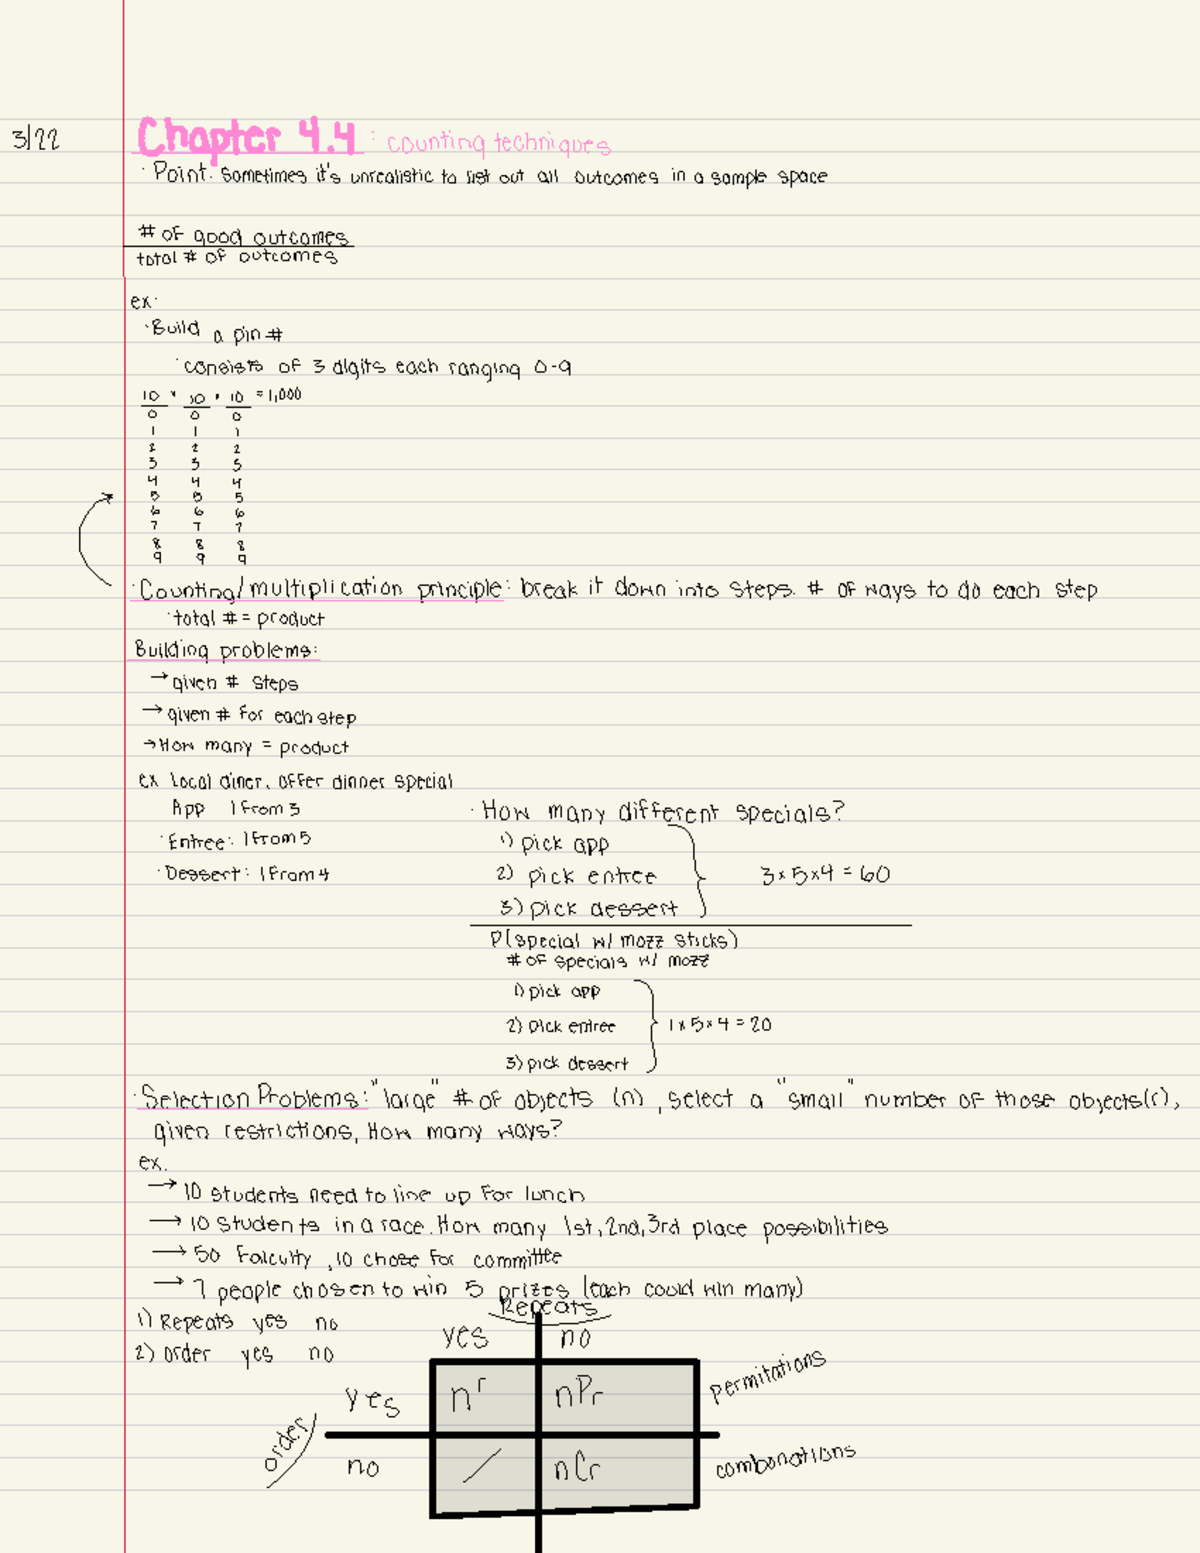 3/22
Chapter 4.4 : counting techniques
· Point: sometimes it's unrealistic to list out all outcomes in a sample space
# of good outcomes
total # of outcomes
ex:
· Build a pin #
· consists of 3 digits each ranging 0-9
10 · 10 · 10 = 1,000
0 0 0
1 1 1
2 2 2
3 3 3
4 4 4
5 5 5
6 6 6
7 7 7
8 8 8
9 9 9
· Counting/multiplication principle: break it down into steps. # of ways to do each step
· total # = product
Building problems:
→ given # steps
→ given # for each step
→ How many = product
ex local diner, offer dinner special
App 1 from 3
· Entree: 1 from 5
· Dessert: 1 from 4
· How many different specials?
1) pick app
2) pick entree
3) pick dessert
3 x 5 x 4 = 60
P(special w/ mozz sticks)
# of specials w/ mozz
1) pick app
2) pick entree
3) pick dessert
1 x 5 x 4 = 20
· Selection Problems: "large" # of objects (n), select a "small" number of those objects(r),
given restrictions, How many ways?
ex.
→ 10 students need to line up for lunch
→ 10 students in a race. How many 1st, 2nd, 3rd place possibilities
→ 50 Falculty, 10 chose for committee
→ 7 people chosen to win 5 prizes (each could win many)
1) Repeats yes no
2) order yes no
Repeats
yes no
order
yes n^r nPr permitations
no / nCr combonations